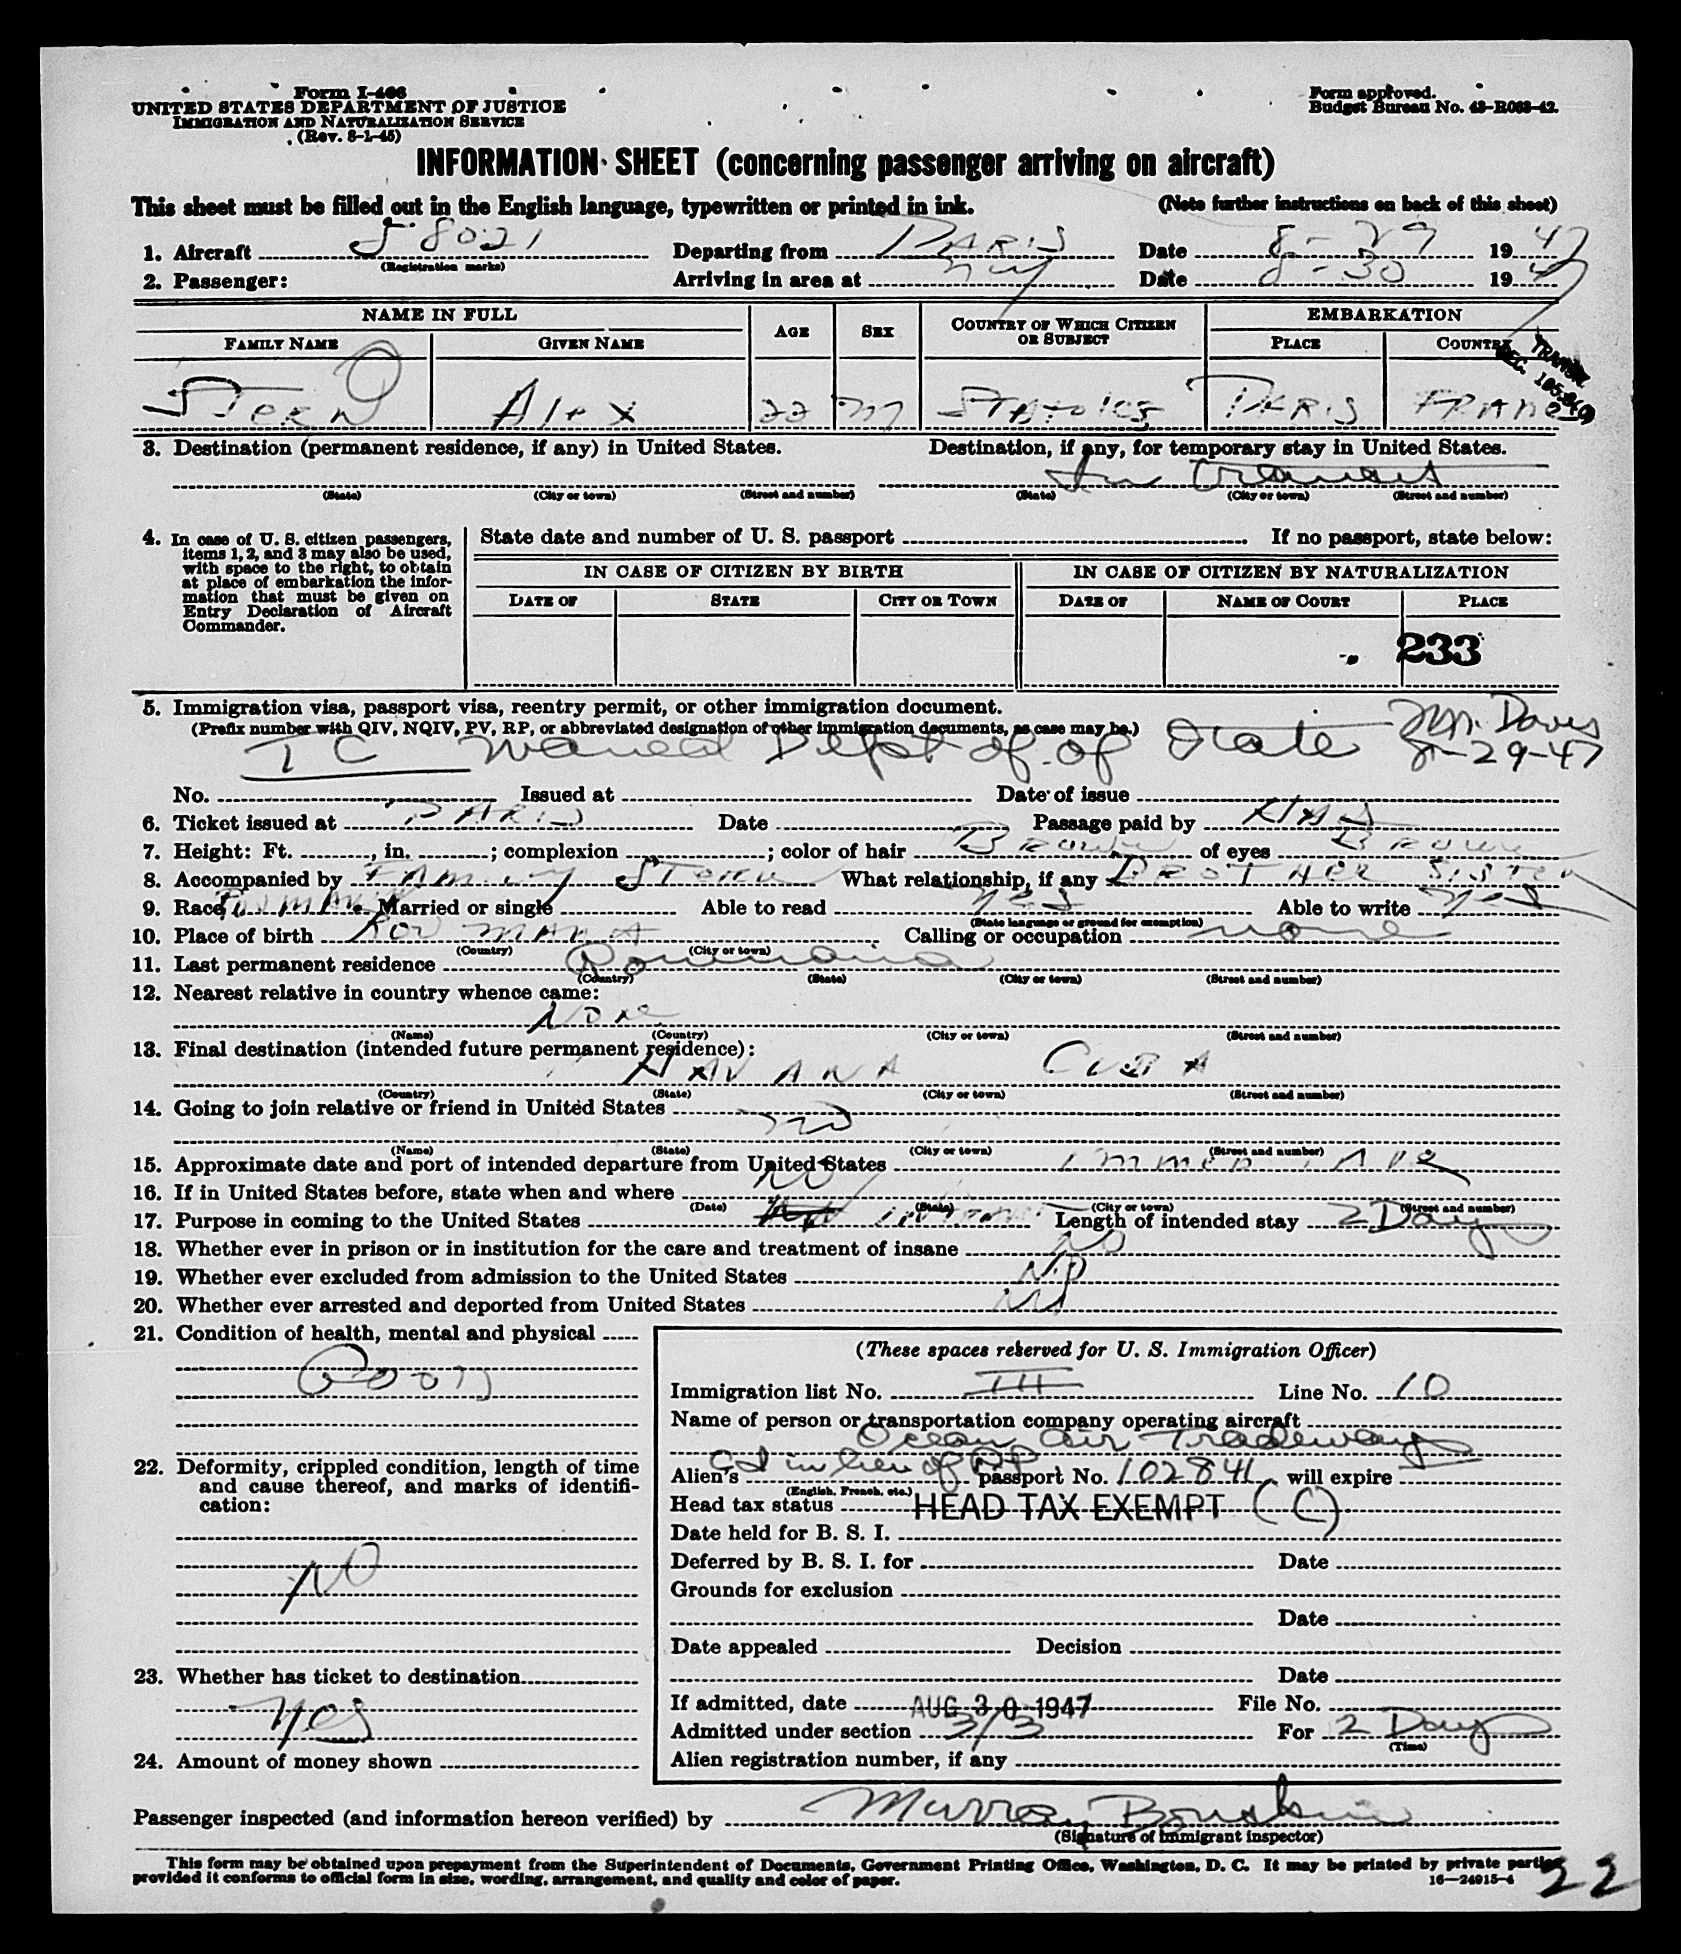 Form I-466
UNITED STATES DEPARTMENT OF JUSTICE
IMMIGRATION AND NATURALIZATION SERVICE
(Rev. 8-1-45)
Form approved.
Budget Bureau No. 43-R063-42.
INFORMATION SHEET (concerning passenger arriving on aircraft)
This sheet must be filled out in the English language, typewritten or printed in ink. (Note further instructions on back of this sheet)
1. Aircraft 58021 Departing from PARIS Date 8-29 1947
(Registration marks)
2. Passenger: Arriving in area at NY Date 8-30 1947
NAME IN FULL AGE SEX COUNTRY OF WHICH CITIZEN OR SUBJECT EMBARKATION
FAMILY NAME GIVEN NAME PLACE COUNTRY
TRANSIT
Stern Alex 22 M STATELES PARIS FRANCE
3. Destination (permanent residence, if any) in United States. Destination, if any, for temporary stay in United States.
In Transit
(State) (City or town) (Street and number) (State) (City or town) (Street and number)
4. In case of U. S. citizen passengers, items 1, 2, and 3 may also be used, with space to the right, to obtain at place of embarkation the information that must be given on Entry Declaration of Aircraft Commander.
State date and number of U. S. passport If no passport, state below:
IN CASE OF CITIZEN BY BIRTH IN CASE OF CITIZEN BY NATURALIZATION
DATE OF STATE CITY OR TOWN DATE OF NAME OF COURT PLACE
233
5. Immigration visa, passport visa, reentry permit, or other immigration document.
(Prefix number with QIV, NQIV, PV, RP, or abbreviated designation of other immigration documents, as case may be.)
TC Waived Dept of of State Mr. Davis
8-29-47
No. Issued at Date of issue
6. Ticket issued at PARIS Date Passage paid by HIAS
7. Height: Ft. , in. ; complexion ; color of hair Brown of eyes Brown
8. Accompanied by FAMILY Stern What relationship, if any BROTHER SISTER
9. Race Married or single Able to read Yes Able to write Yes
(State language or ground for exemption)
10. Place of birth ROUMANIA Calling or occupation none
(Country) (City or town)
11. Last permanent residence Roumania
(Country) (State) (City or town) (Street and number)
12. Nearest relative in country whence came:
None
(Name) (Country) (City or town) (Street and number)
13. Final destination (intended future permanent residence):
HAVANA CUBA
(Country) (State) (City or town) (Street and number)
14. Going to join relative or friend in United States
NO
(Name) (State) (City or town) (Street and number)
15. Approximate date and port of intended departure from United States
16. If in United States before, state when and where NO
(Date) (State) (City or town) (Street and number)
17. Purpose in coming to the United States in Transit Length of intended stay 2 Days
18. Whether ever in prison or in institution for the care and treatment of insane NO
19. Whether ever excluded from admission to the United States NO
20. Whether ever arrested and deported from United States NO
21. Condition of health, mental and physical
Good
22. Deformity, crippled condition, length of time and cause thereof, and marks of identification:
NO
23. Whether has ticket to destination
Yes
24. Amount of money shown
(These spaces reserved for U. S. Immigration Officer)
Immigration list No. III Line No. 10
Name of person or transportation company operating aircraft
Ocean Air Tradeways
Alien's in lieu of PP passport No. 102841, will expire
(English, French, etc.)
Head tax status HEAD TAX EXEMPT (C)
Date held for B. S. I.
Deferred by B. S. I. for Date
Grounds for exclusion
Date
Date appealed Decision
Date
If admitted, date AUG 30 1947 File No.
Admitted under section 3/3 For 2 Days
(Time)
Alien registration number, if any
Passenger inspected (and information hereon verified) by Murray
(Signature of immigrant inspector)
This form may be obtained upon prepayment from the Superintendent of Documents, Government Printing Office, Washington, D. C. It may be printed by private parties
provided it conforms to official form in size, wording, arrangement, and quality and color of paper. 16—24915-4
22